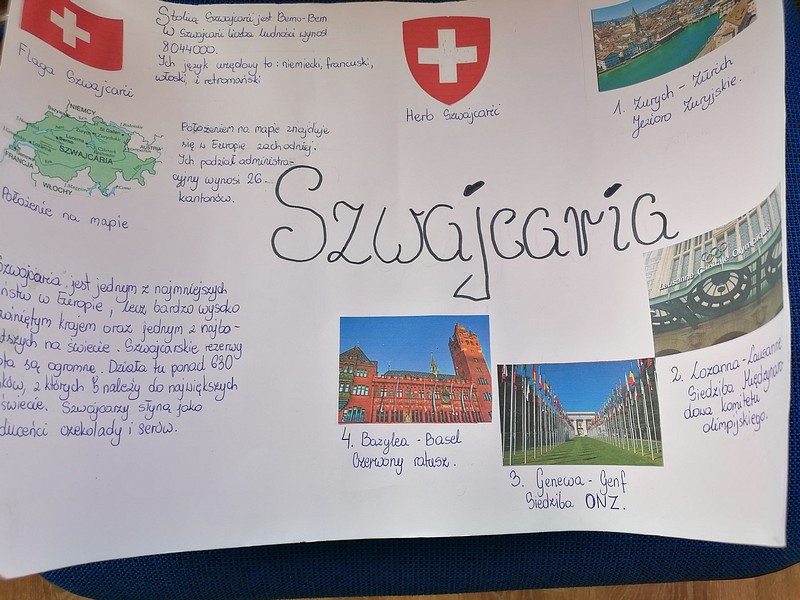 Flaga Szwajcarii
Stolicą Szwajcarii jest Berno-Bern
W Szwajcarii liczba ludności wynosi
8044000.
Ich język urzędowy to : niemiecki, francuski,
włoski, i retromański
Herb Szwajcarii
1. Zurych - Zürich
Jezioro Zuryjskie.
NIEMCY
SZWAJCARIA
AUSTRIA
FRANCJA
WŁOCHY
Położenie na mapie
Położeniem na mapie znajduje
się w Europie zachodniej.
Ich podział administra-
cyjny wynosi 26
kantonów.
Szwajcaria
Szwajcaria jest jednym z najmniejszych
państw w Europie, lecz bardzo wysoko
winiętym krajem oraz jednym z najbo-
tszych na świecie. Szwajcarskie rezerwy
ota są ogromne. Działa tu ponad 630
ków, z których 5 należy do największych
świecie. Szwajcarzy słyną jako
ducenci czekolady i serów.
Lausanne Capitale Olympique
2. Lozanna-Lausanne
Siedziba Międzynaro
dowa komitetu
olimpijskiego.
4. Bazylea - Basel
Czerwony ratusz.
3. Genewa - Genf
Siedziba ONZ.